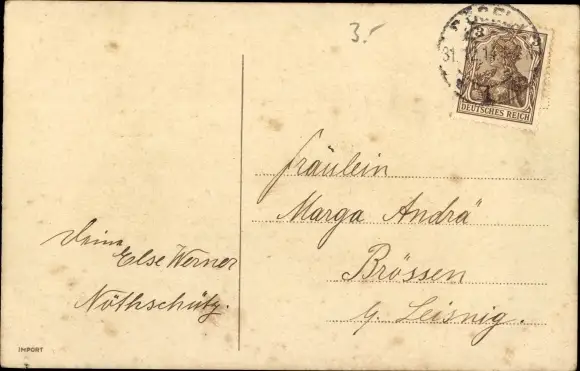 3.-
3
31.
DEUTSCHES REICH
Fräulein
Marga Andrä
Brössen
b. Leisnig.
Deine
Else Werner
Nöthschütz.
IMPORT